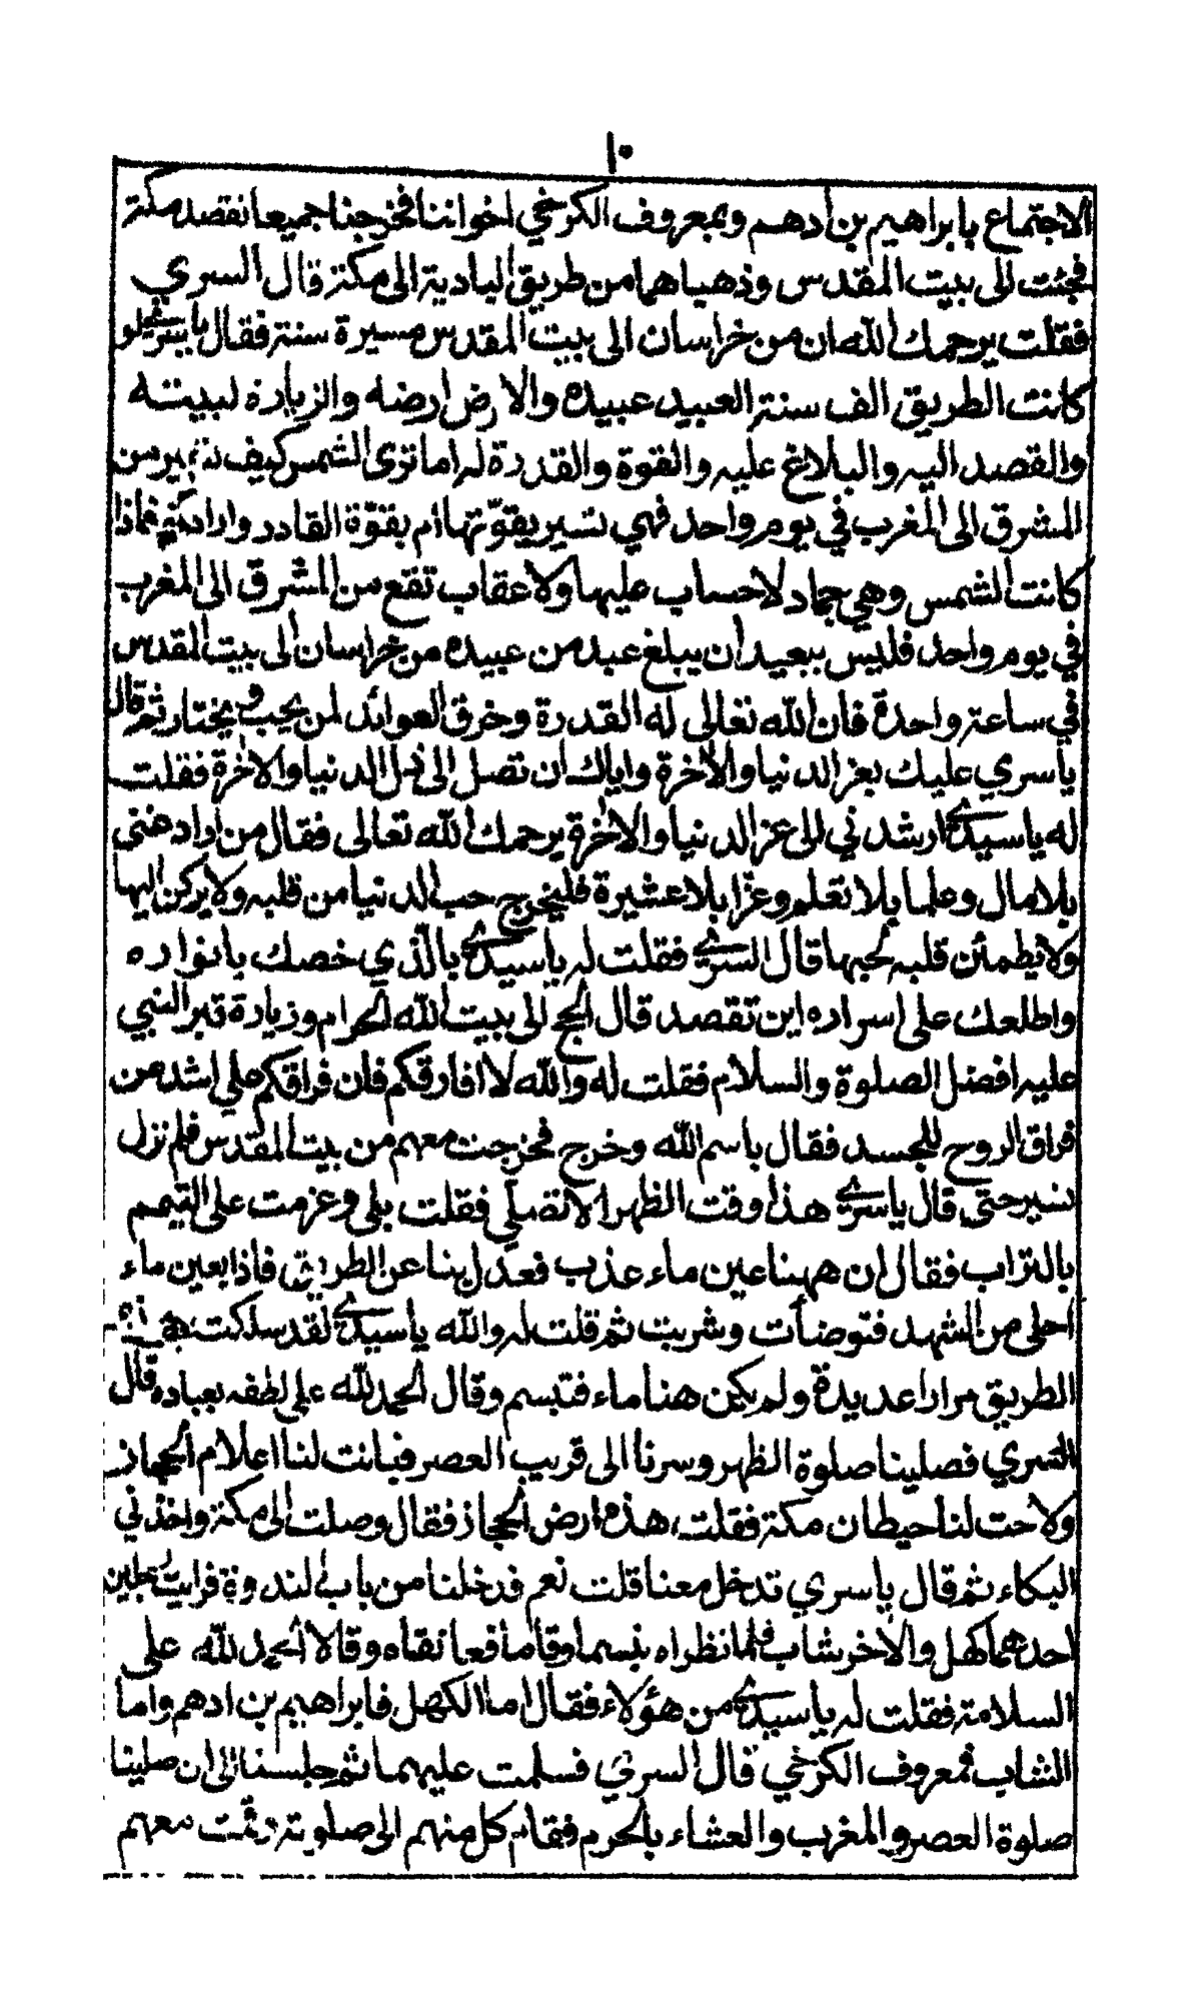 ١٠
الاجتماع بابراهيم بن أدهم وبمعروف الكرخي اخواننا فخرجنا جميعا نقصد مكة
فجئت الى بيت المقدس وذهبا هما من طريق البادية الى مكة قال السري
فقلت يرحمك الله ان من خراسان الى بيت المقدس مسيرة سنة فقال يا سري لو
كانت الطريق الف سنة العبيد عبيده والارض ارضه والزيارة لبيته
والقصد اليه والبلاغ عليه والقوة والقدرة له اما ترى الشمس كيف تسير من
المشرق الى المغرب في يوم واحد فهي تسير بقوّتها ام بقوّة القادر وارادته فاذا
كانت الشمس وهي جماد لا حساب عليها ولا عقاب تقع من المشرق الى المغرب
في يوم واحد فليس ببعيد أن يبلغ عبد من عبيده من خراسان الى بيت المقدس
في ساعة واحدة فان الله تعالى له القدرة وخرق العوائد لمن يحب ويختار ثم قال
يا سري عليك بعز الدنيا والآخرة واياك ان تصل الى ذل الدنيا والآخرة فقلت
له يا سيدي ارشدني الى عز الدنيا والآخرة يرحمك الله تعالى فقال من أراد غنى
بلا مال وعلما بلا تعلم وعزّا بلا عشيرة فليخرج حب الدنيا من قلبه ولا يركن اليها
ولا يطمئن قلبه بحبها قال السري فقلت له يا سيدي بالذي خصك بانواره
واطلعك على اسراره اين تقصد قال الحج الى بيت الله الحرام وزيارة قبر النبي
عليه افضل الصلوة والسلام فقلت له والله لا افارقكم فان فراقكم علي اشد من
فراق الروح للجسد فقال باسم الله وخرج فخرجت معهم من بيت المقدس فلم نزل
نسير حتى قال يا سري هذا وقت الظهر ألا تصلّي فقلت بلى وعزمت على التيمم
بالتراب فقال ان ههنا عين ماء عذب فعدل بنا عن الطريق فاذا بعين ماء
احلى من الشهد فتوضأت وشربت ثم قلت له والله يا سيدي لقد سلكت هذه
الطريق مرارا عديدة ولم يكن هنا ماء فتبسم وقال الحمد لله على لطفه بعباده قال
السري فصلينا صلوة الظهر وسرنا الى قريب العصر فبانت لنا اعلام الحجاز
ولاحت لنا حيطان مكة فقلت هذه ارض الحجاز فقال وصلت الى مكة واخذني
البكاء ثم قال يا سري تدخل معنا قلت نعم فدخلنا من باب الندوة فرايت رجلين
احدهما كهل والآخر شاب فلما نظراه تبسما وقاما فعانقاه وقالا الحمد لله على
السلامة فقلت له يا سيدي من هؤلاء فقال اما الكهل فابراهيم بن ادهم واما
الشاب فمعروف الكرخي قال السري فسلمت عليهما ثم جلسنا الى ان صلينا
صلوة العصر والمغرب والعشاء بالحرم فقام كل منهم الى صلوته وقمت معهم